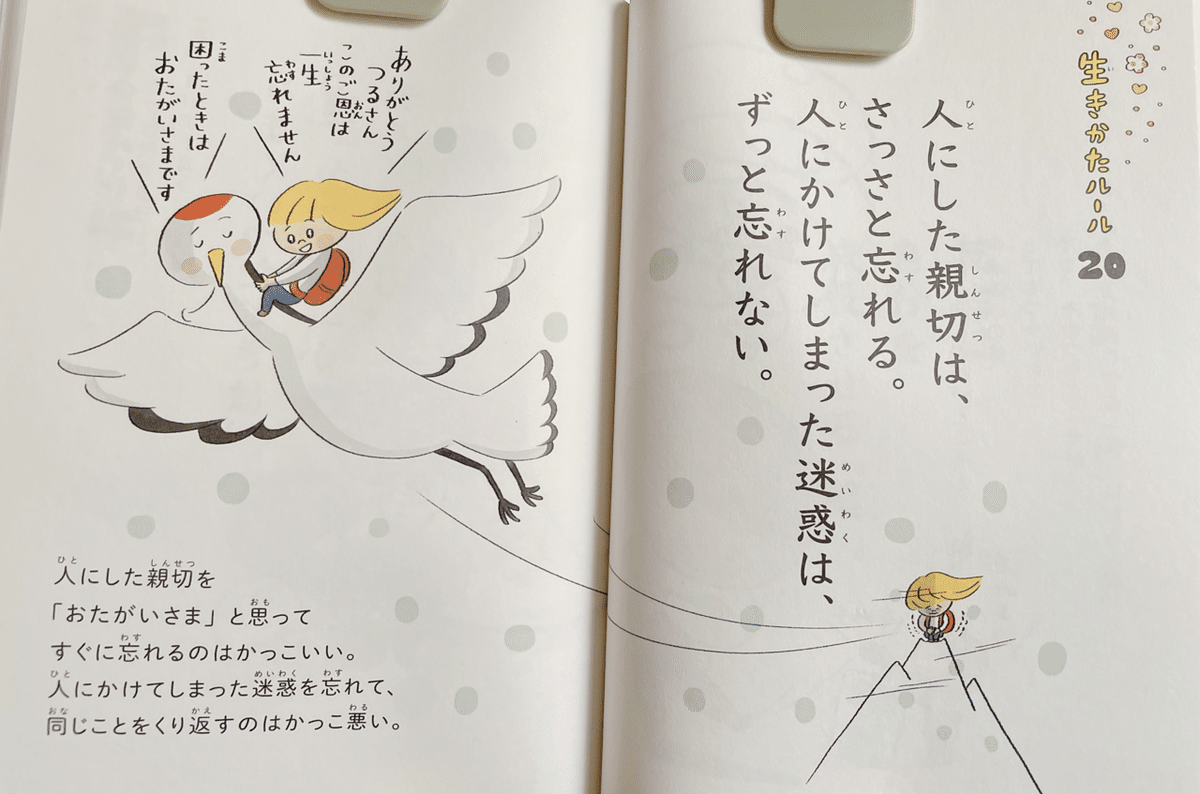 生きかたルール
20
人にした親切は、
さっさと忘れる。
人にかけてしまった迷惑は、
ずっと忘れない。
ありがとう
つるさん
このご恩は
一生
忘れません
困ったときは
おたがいさまです
人にした親切を
「おたがいさま」と思って
すぐに忘れるのはかっこいい。
人にかけてしまった迷惑を忘れて、
同じことをくり返すのはかっこ悪い。